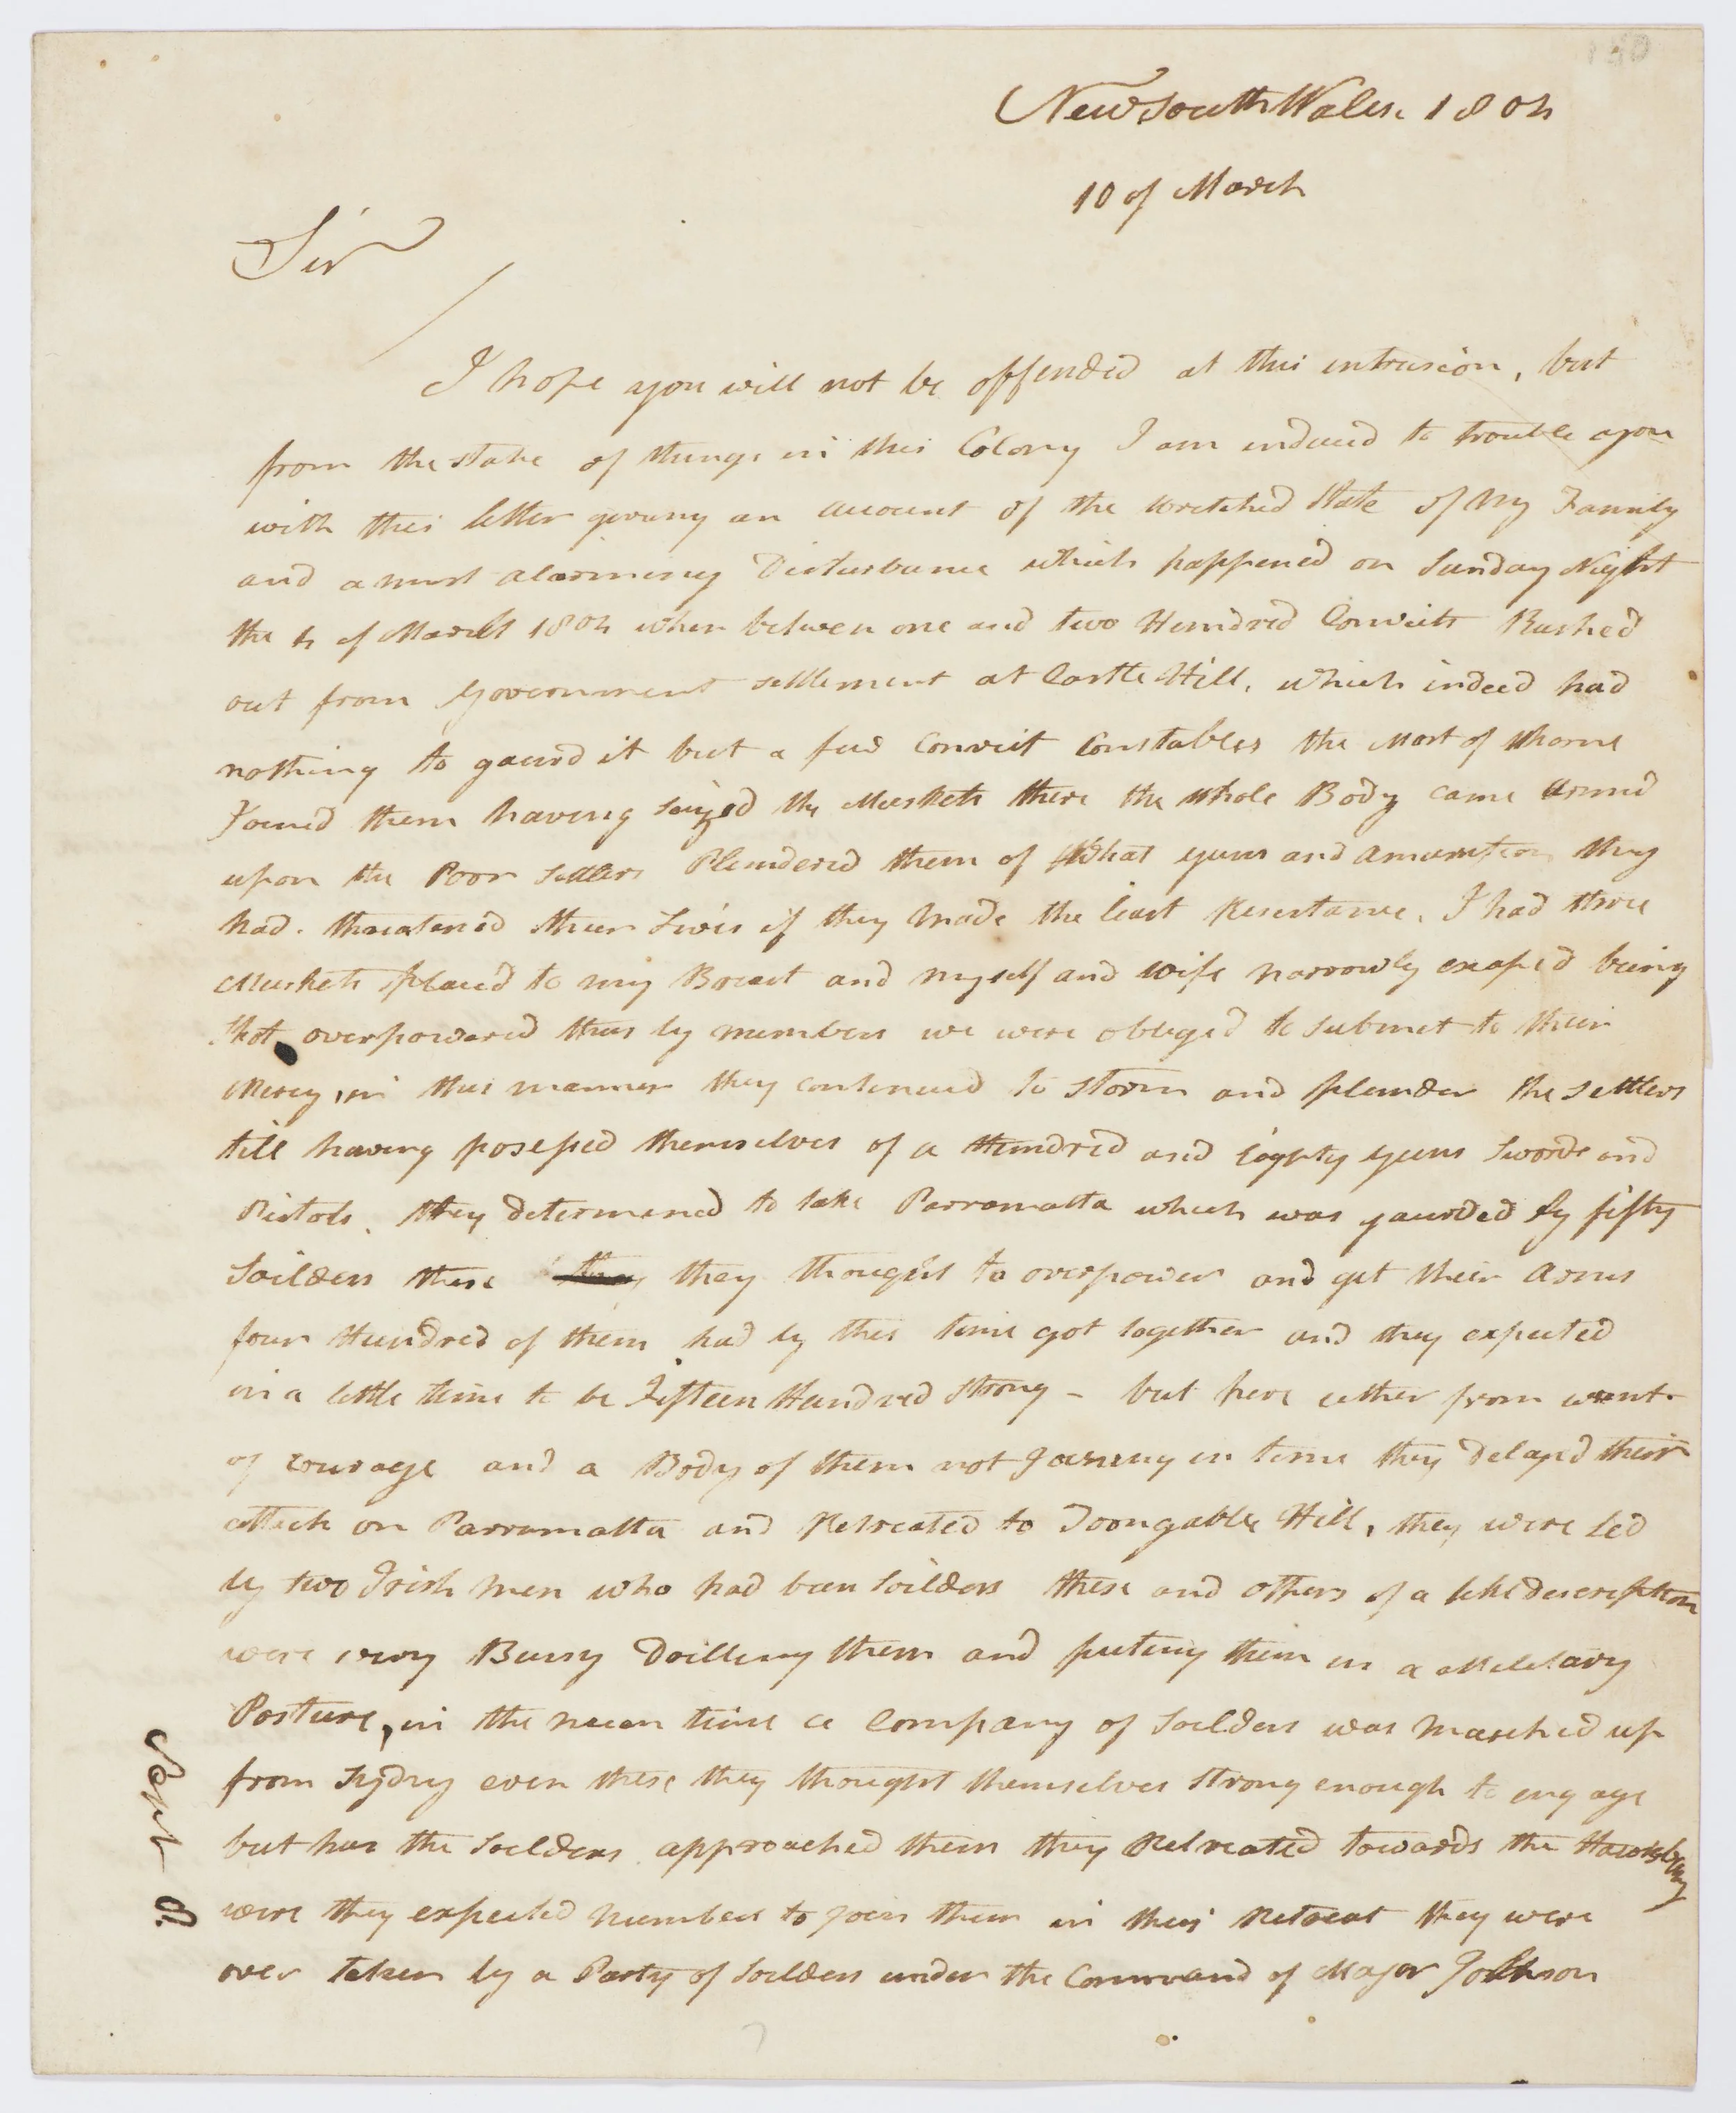 New South Wales. 1804
10 of March
Sir
I hope you will not be offended at this intrusion, but
from the state of things in this Colony I am induced to trouble you
with this letter giving an account of the wretched State of My Family
and a most alarming Disturbance which happened on Sunday Night
the 4 of March 1804 when between one and two Hundred Convicts Rushed
out from Government settlement at Castle Hill, which indeed had
nothing to gaurd it but a few Convict Constables the Most of whome
Joined them having seized the Muskets there the whole Body came armed
upon the Poor Settlers Plundered them of What guns and amunition they
had. threatened their Lives if they Made the least Resistance, I had three
Muskets placed to my Breast and myself and wife narrowly escaped being
shot overpowered thus by numbers we were obliged to submit to their
Mercy, in this manner they continued to storm and plunder the settlers
till having possesed themselves of a Hundred and Eighty guns Swords and
Pistols. they determined to take Parramatta which was gaurded by fifty
Soilders these they thought to overpower and get their arms
four Hundred of them had by this time got together and they expected
in a little time to be Fifteen Hundred Strong - but here either from want
of courage and a Body of them not Joining in time they Delayd their
attack on Parramatta and Retreated to Toongabbe Hill, they were led
by two Irish men who had been Soilders these and others of a like description
were very Bussy Drilling them and puting them in a Military
Posture, in the mean time a Company of Soilders was Marched up
from Sydny even these they thought themselves Strong enough to engage
but has the Soilders approached them they Retreated towards the Hawksbury
were they expected numbers to join them in this Retreat they were
over taken by a Party of Soilders under the Command of Major Johnson